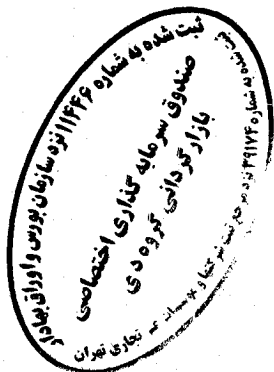 ثبت شده به شماره ۱۱۴۴۶ نزد سازمان بورس و اوراق بهادار
صندوق سرمایه گذاری اختصاصی
بازارگردانی گروه دی
ثبت شده به شماره ۳۹۱۷۴ نزد مرجع ثبت شرکتها و موسسات غیر تجاری تهران